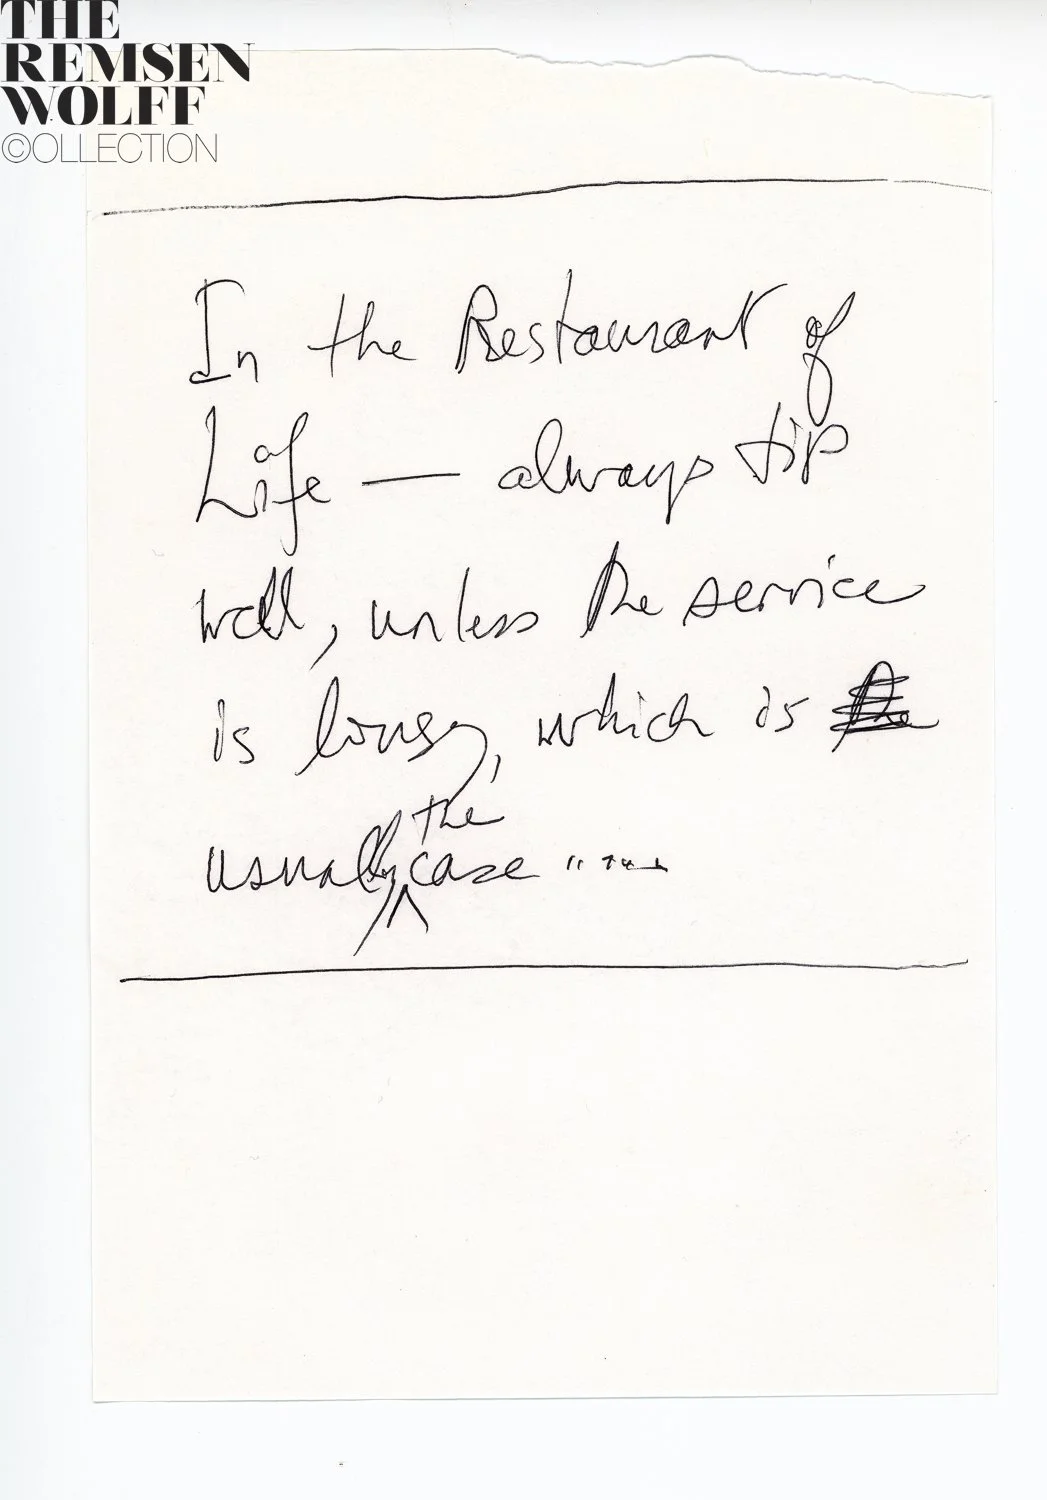 THE
REMSEN
WOLFF
©OLLECTION
In the Restaurant of
Life — always tip
well, unless the service
is lousy, which is the
usually the case .....